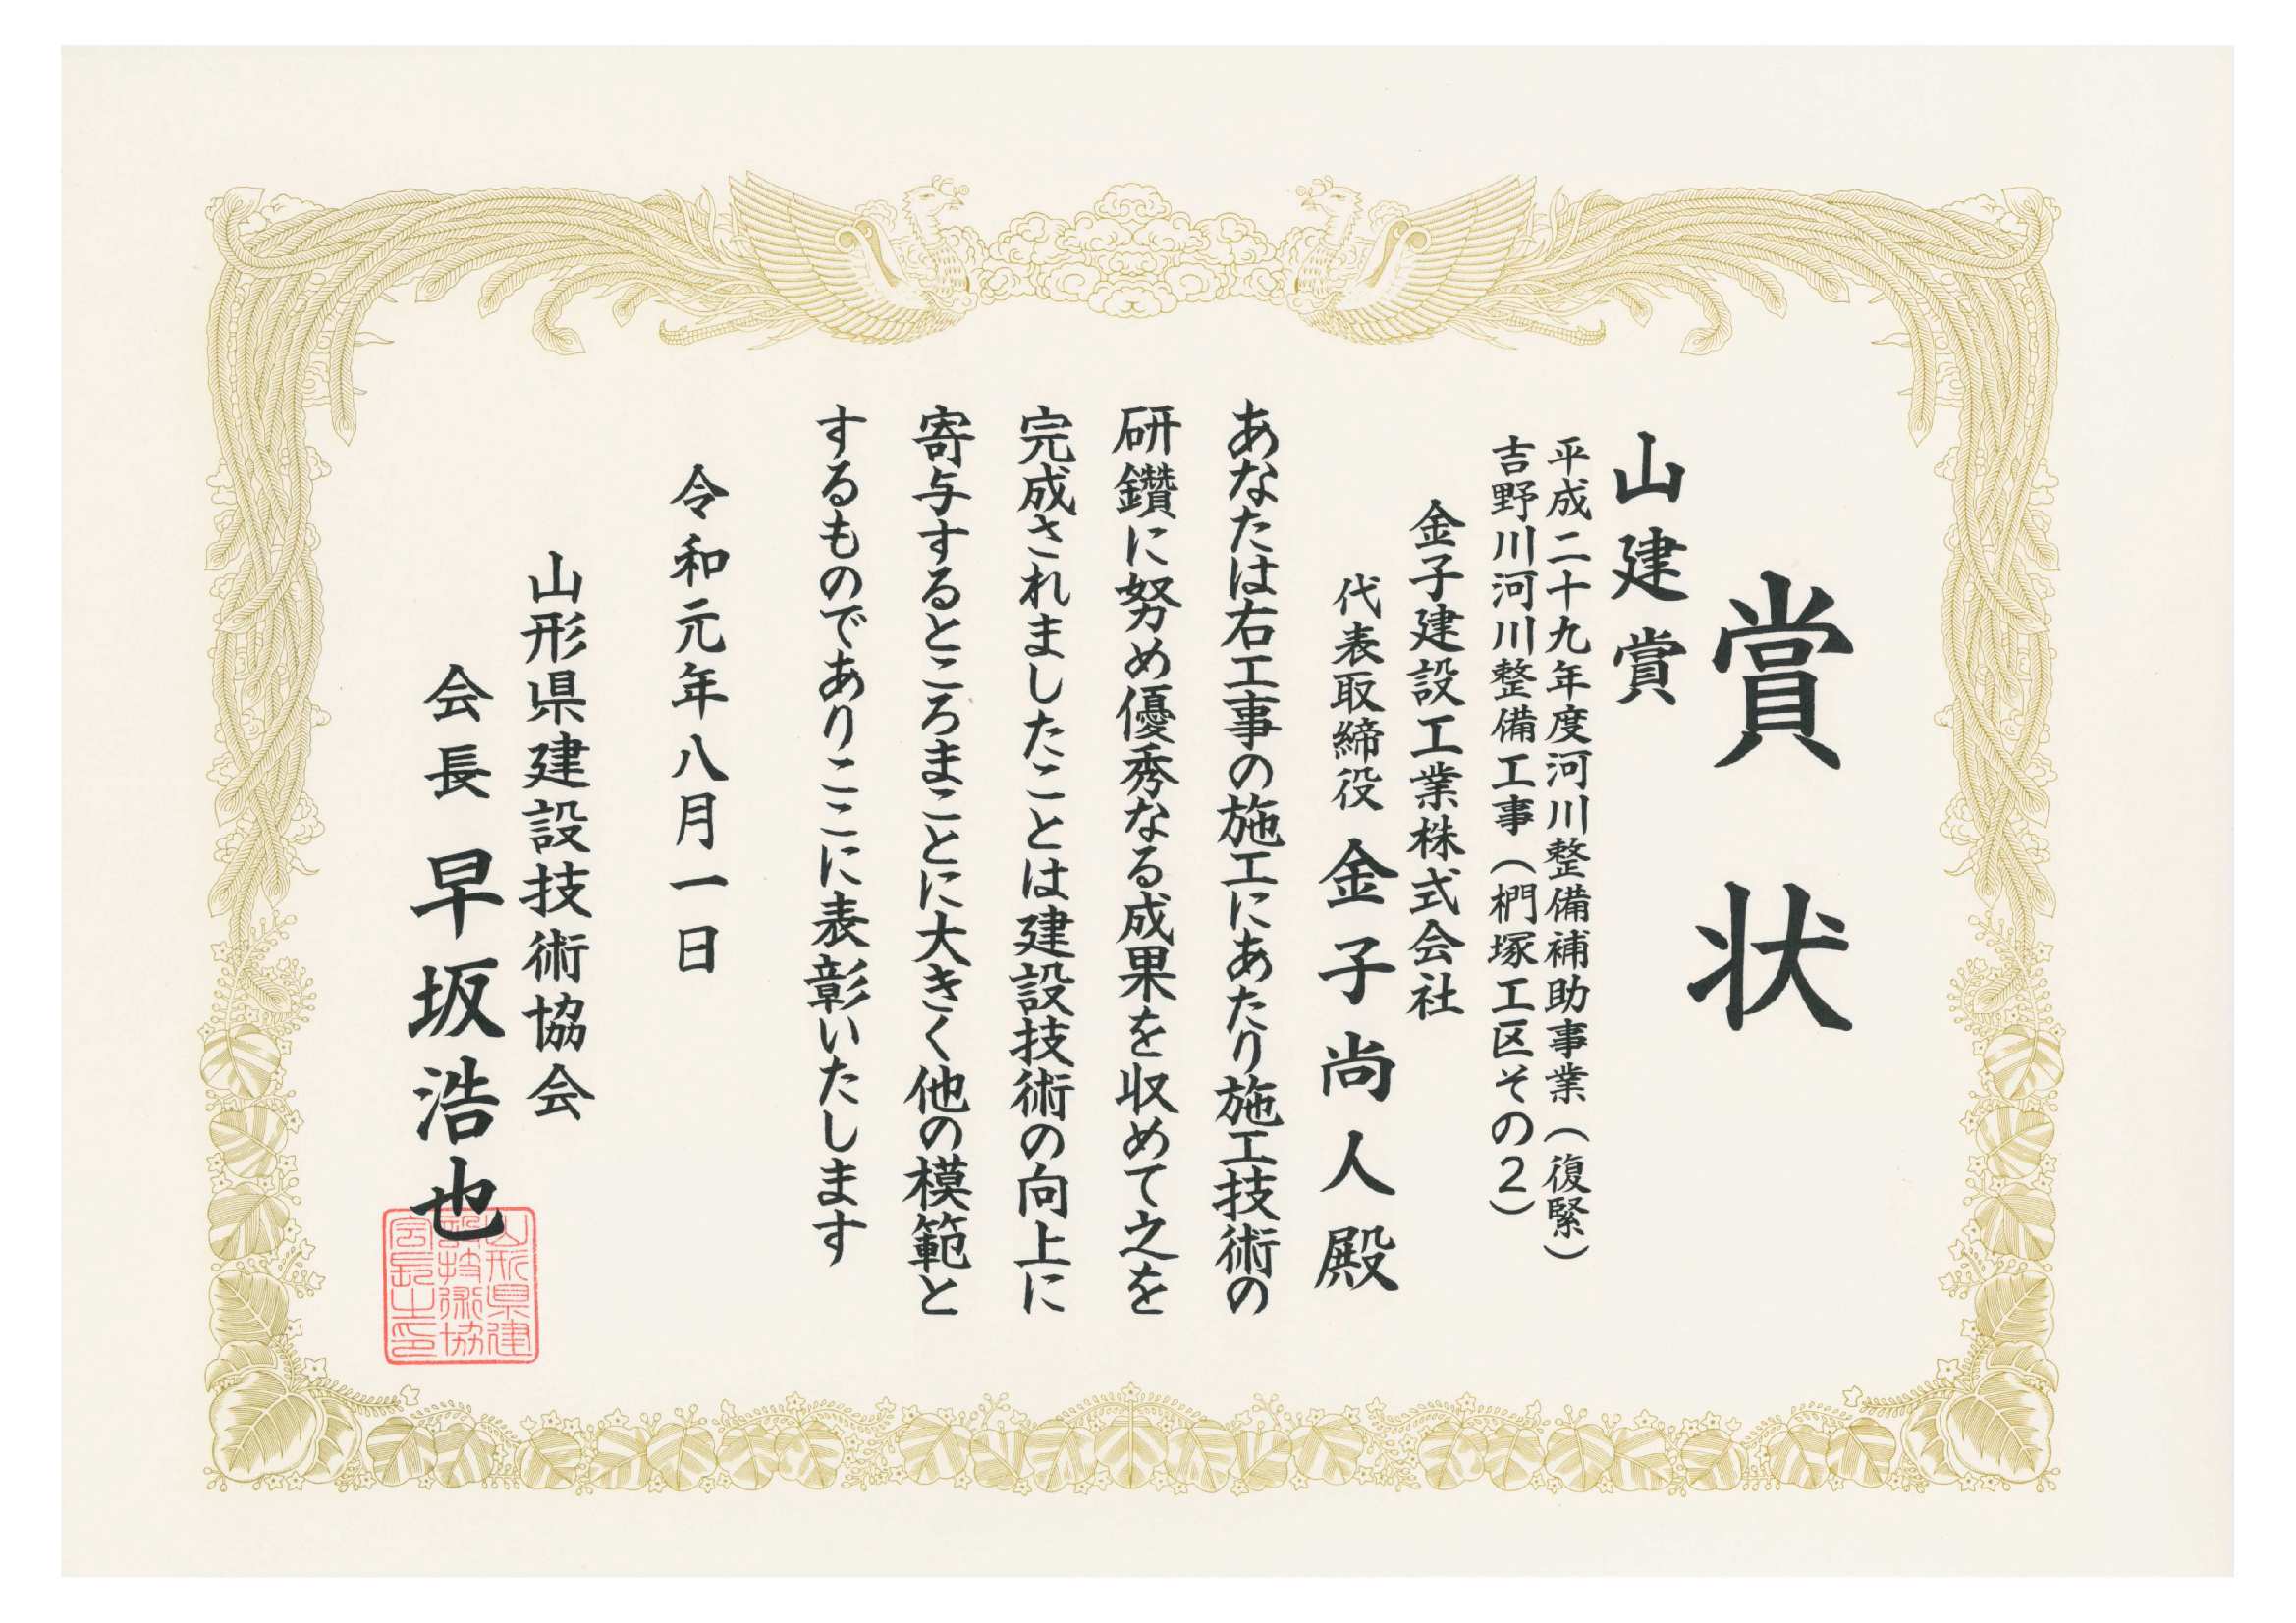 賞状
山建賞
平成二十九年度河川整備補助事業（復緊）
吉野川河川整備工事（椚塚工区その２）
金子建設工業株式会社
代表取締役 金子尚人殿
あなたは右工事の施工にあたり施工技術の
研鑽に努め優秀なる成果を収めて之を
完成されましたことは建設技術の向上に
寄与するところまことに大きく他の模範と
するものでありここに表彰いたします
令和元年八月一日
山形県建設技術協会
会長 早坂浩也
山形県建
設技術協
会長之印